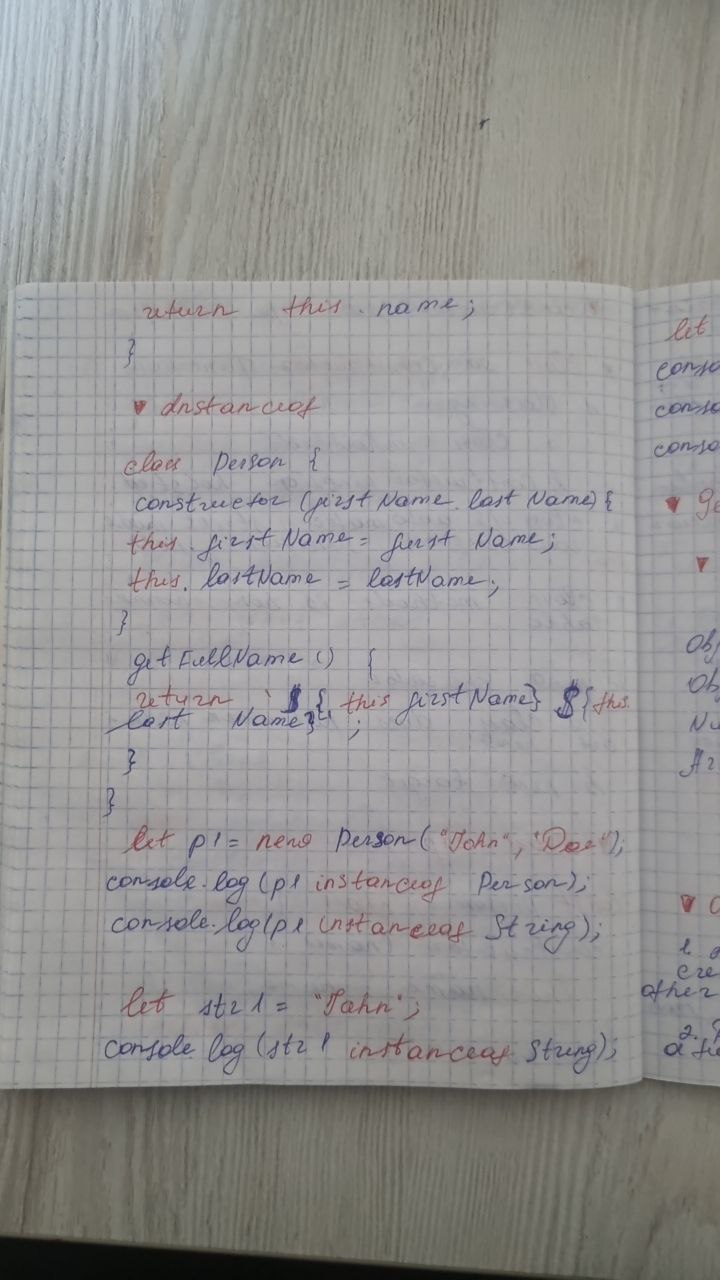 return this.name;
}
▼ Instanceof
class Person {
constructor (firstName, lastName) {
this.firstName = first Name;
this.lastName = lastName;
}
getFullName () {
return `${this firstName} ${this.
last Name}`;
}
}
let p1 = new Person("John", "Doe");
console.log (p1 instanceof Person);
console.log(p1 instanceof String);
let str1 = "John";
console log (str1 instanceof String);
let
conso
conso
conso
▼ Ge
▼
Obj
Ob
Nu
Ar
▼
1.
cre
other
2.
a fu